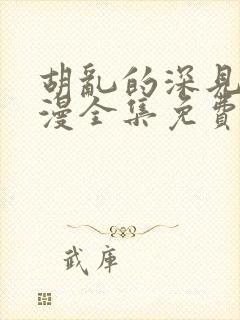 胡亂的深見
漫全集免費
武庫